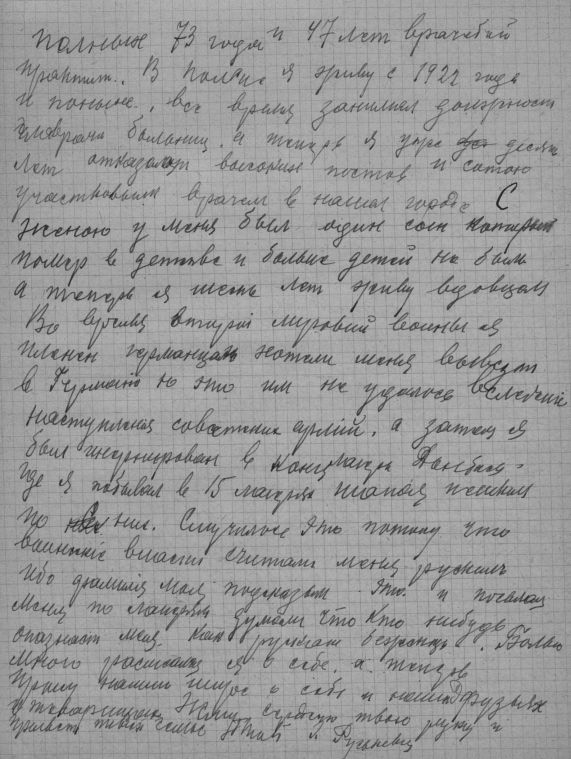 полных 73 года и 47 лет врачебной
практики. В Польше я живу с 1922 года
и поныне, все время занимал должности
главврача больниц, а теперь я уже десять
лет отказался высоких постов и
участковым врачем в нашем городе С
женою у меня был один сын который
помер в детстве и больше детей не было
а теперь я шесть лет живу вдовцом
Во время второй мировой войны я
пленен германцам хотели меня вывезти
в Германию но это им не удалось вследствии
наступления советских армий, а затем я
был интернирован в концлагерь Донбасс
где я побывал в 15 лагерях шагая пешком
по них. Случилось это потому что
воинские власти считали меня русским
ибо фамилия моя это и посылая
меня по лагерям думали что кто нибудь
опознает меня как беженца. Больше
много расписался я о себе, а теперь
прошу напиши о себе и наших друзьях
и товарищах Жму сердечно твою руку и
твоей семье